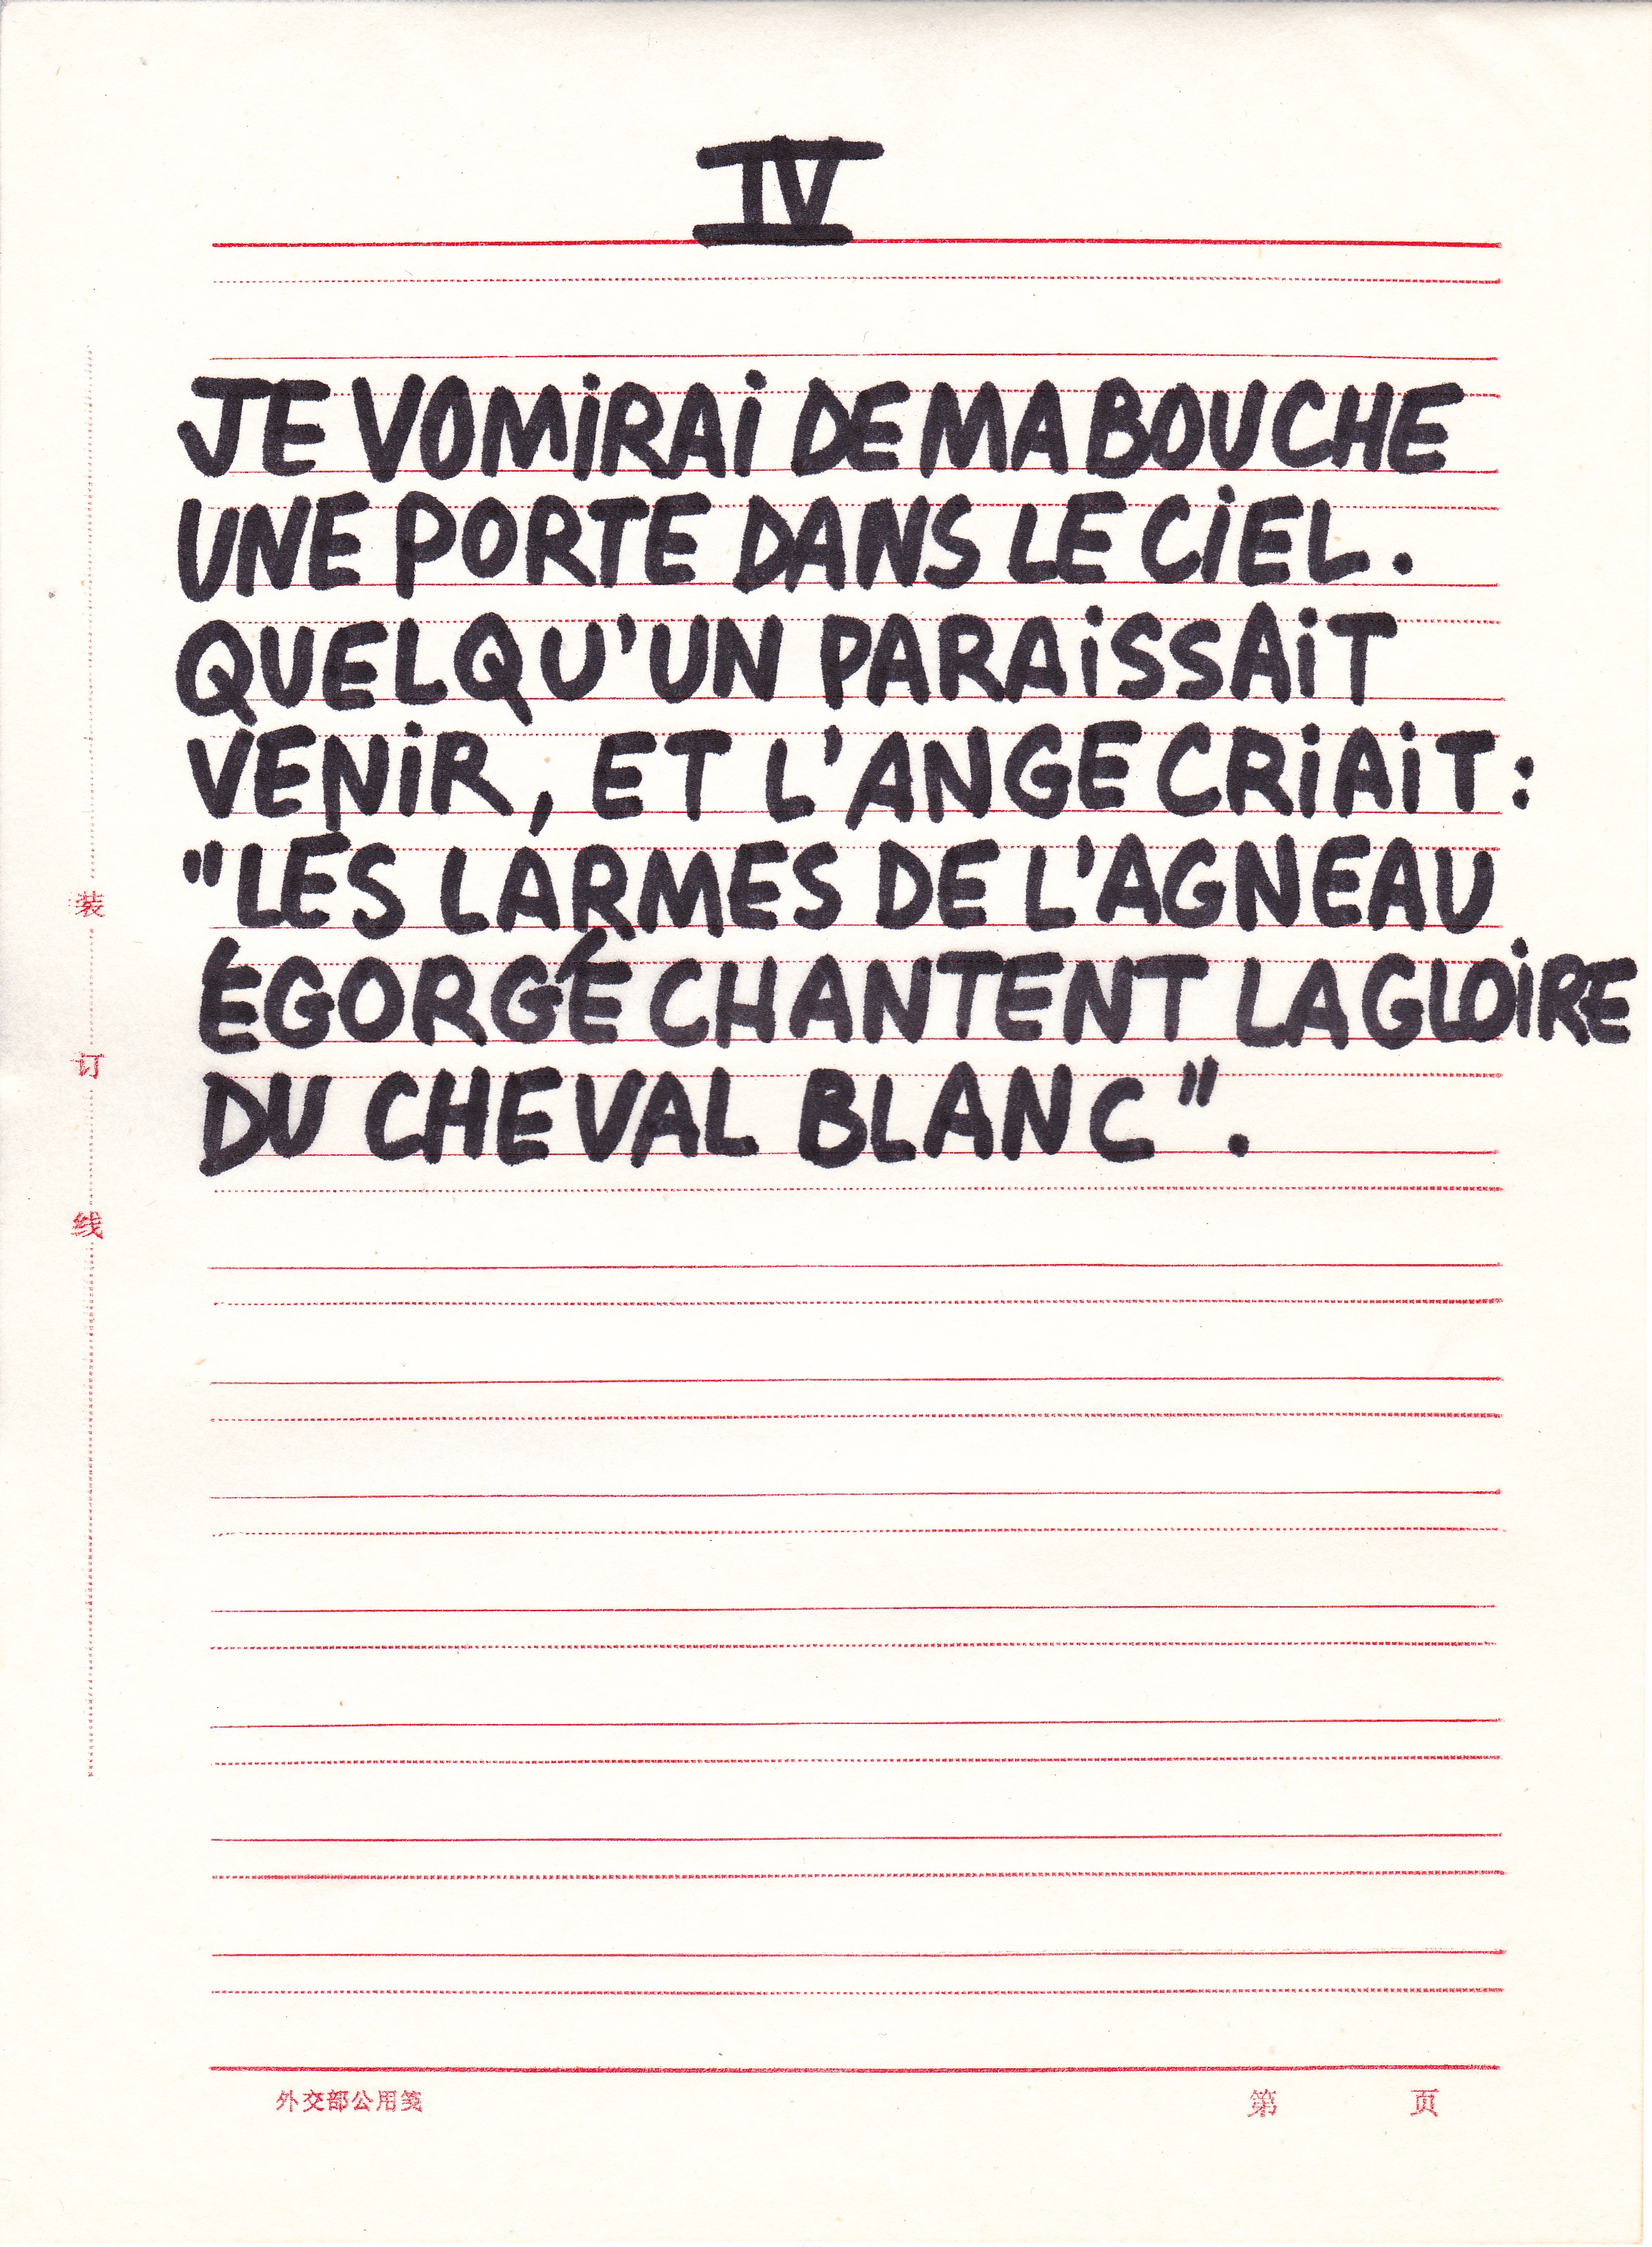 IV
JE VOMiRAi DE MA BOUCHE
UNE PORTE DANS LE CiEL.
QUELQU'UN PARAiSSAiT
VENiR, ET L'ANGE CRiAiT :
"LES LARMES DE L'AGNEAU
ÉGORGÉ CHANTENT LA GLOiRE
DU CHEVAL BLANC".
装
订
线
外交部公用笺
第 页